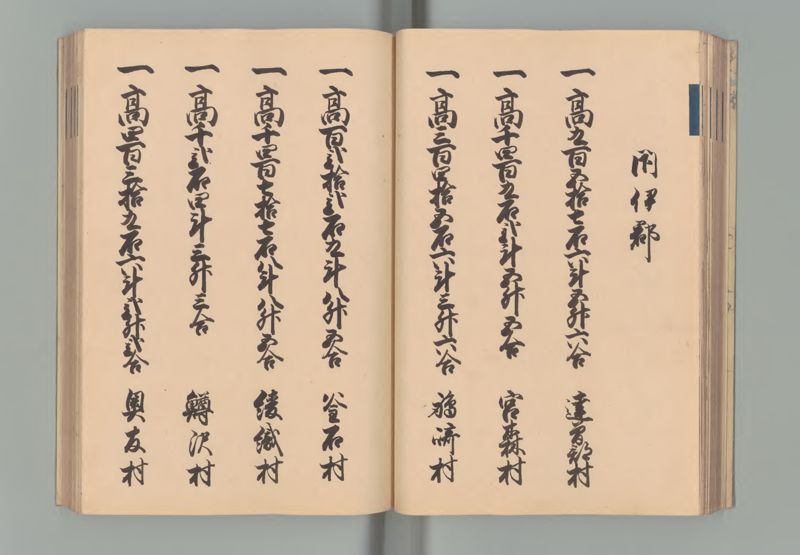 閉伊郡
一高九百五拾七石六斗五升六合 達曽部村
一高千四百九石弐斗五升五合 宮森村
一高三百四拾五石六斗三升六合 鵢崎村
一高百弐拾弐石九斗八升五合 釜石村
一高千四百七拾七石八斗八升五合 綾織村
一高千弐石四斗三升三合 鱒沢村
一高四百三拾九石六斗弐升弐合 奥友村